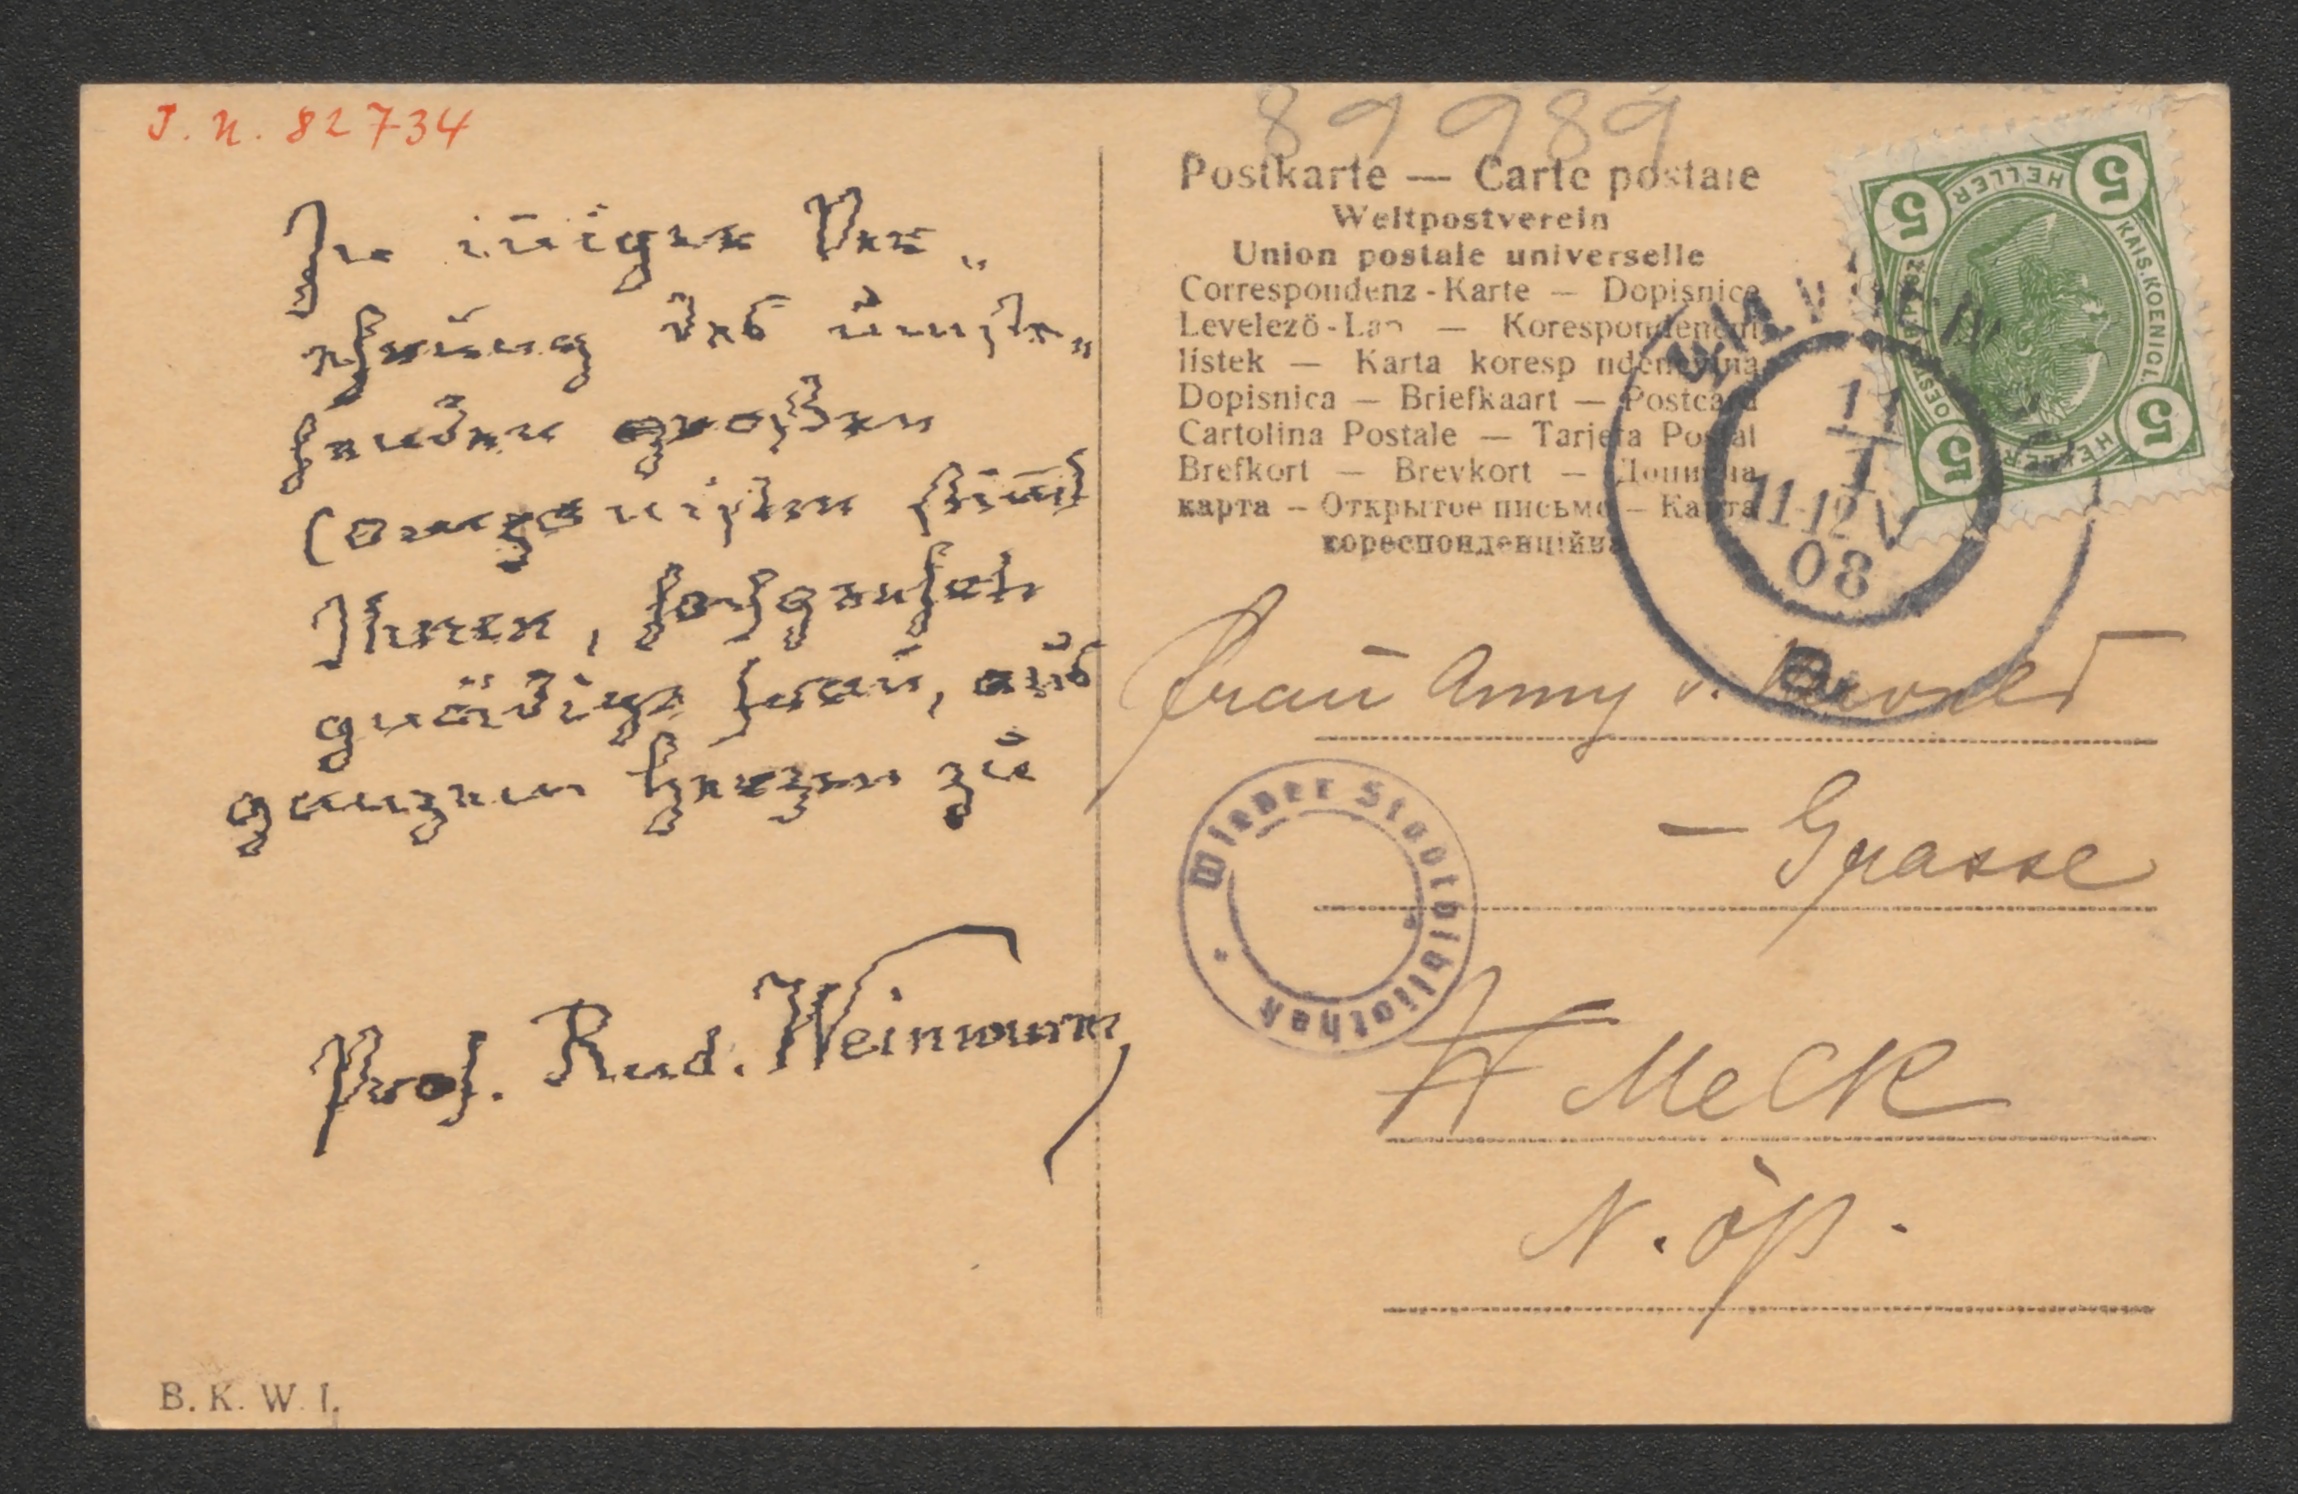 J. N. 82734
In iniger Ver„
ehrung des umste„
henden großen
Componisten stimt
Ihnen, hochgeehrte
gnädige Frau, aus
ganzem Herzen zu
Prof. Rud. Weinwurm
B. K. W. I.
89989
Postkarte — Carte postale
Weltpostverein
Union postale universelle
Correspondenz-Karte — Dopisnice
Levelező-Lap — Korespondenční
lístek — Karta korespondencyjna
Dopisnica — Briefkaart — Postcard
Cartolina Postale — Tarjeta Postal
Brefkort — Brevkort — Дописна
карта – Открытое письмо – Карта
кореспонденційна
5 HELLER 5
KAIS. KOENIGL.
5 HELLER 5
WIEN
11
I
11-12 V
08
Frau Anny v.
Wiener Stadtbibliothek
— Grasse
Melk
N. öst.